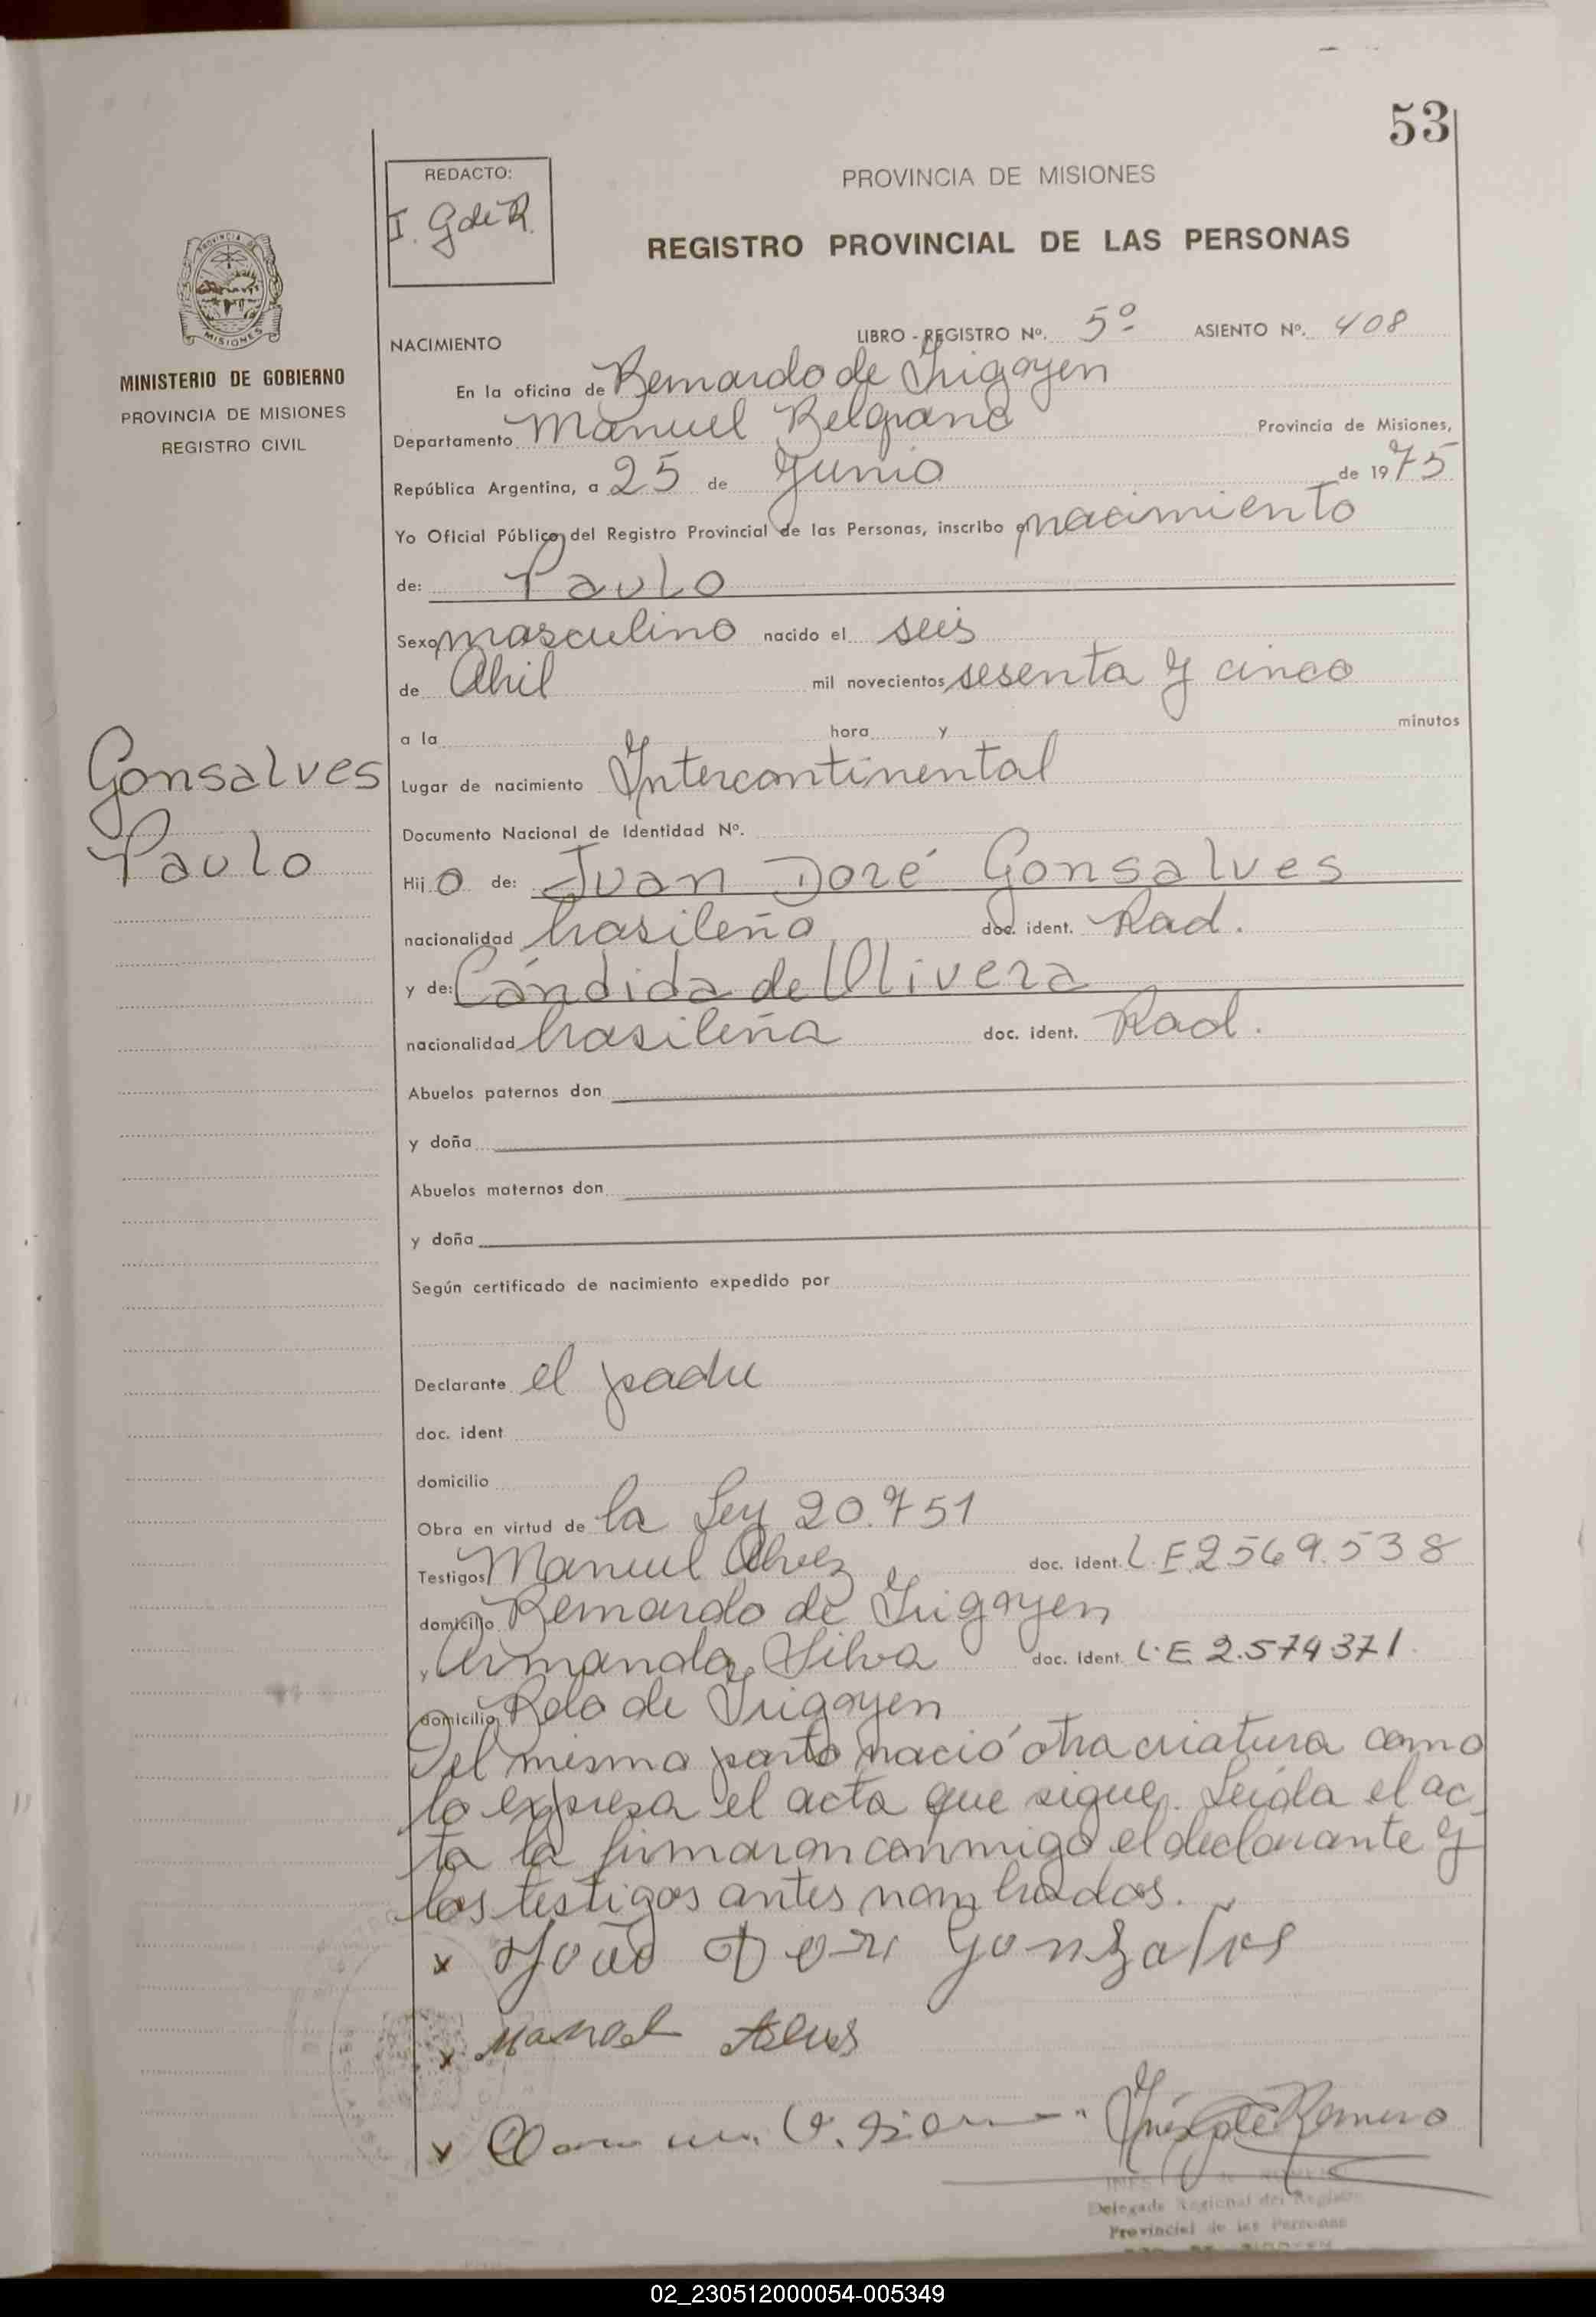 53
REDACTO:
I. G de R.
PROVINCIA DE MISIONES
REGISTRO PROVINCIAL DE LAS PERSONAS
PROVINCIA DE
MISIONES
MINISTERIO DE GOBIERNO
PROVINCIA DE MISIONES
REGISTRO CIVIL
NACIMIENTO
LIBRO - REGISTRO Nº. 5º ASIENTO Nº. 408
En la oficina de Bernardo de Irigoyen
Departamento Manuel Belgrano Provincia de Misiones,
República Argentina, a 25 de Junio de 1975
Yo Oficial Público del Registro Provincial de las Personas, inscribo el nacimiento
de: Paulo
Sexo masculino nacido el seis
de Abril mil novecientos sesenta y cinco
a la hora y minutos
Gonsalves
Paulo
Lugar de nacimiento Intercontinental
Documento Nacional de Identidad Nº.
Hijo de: Juan Doré Gonsalves
nacionalidad brasileño doc. ident. Rad.
y de: Cándida de Olivera
nacionalidad brasileña doc. ident. Rad.
Abuelos paternos don
y doña
Abuelos maternos don
y doña
Según certificado de nacimiento expedido por
Declarante el padre
doc. ident
domicilio
Obra en virtud de la Ley 20.751
Testigos Manuel Alvez doc. ident. L.E 2569.538
domicilio Bernardo de Irigoyen
y Armando Silva doc. ident. L.E 2.574371.
domicilio Bdo de Irigoyen
Del mismo parto nació otra criatura como
lo expresa el acta que sigue. Leída el ac
ta la firmaron conmigo el declarante y
los testigos antes nombrados.
x João Doré Gonzalves
x Manoel Alves
x
Inés G de Romero
Delegada Regional del Registro
Provincial de las Personas
02_230512000054-005349